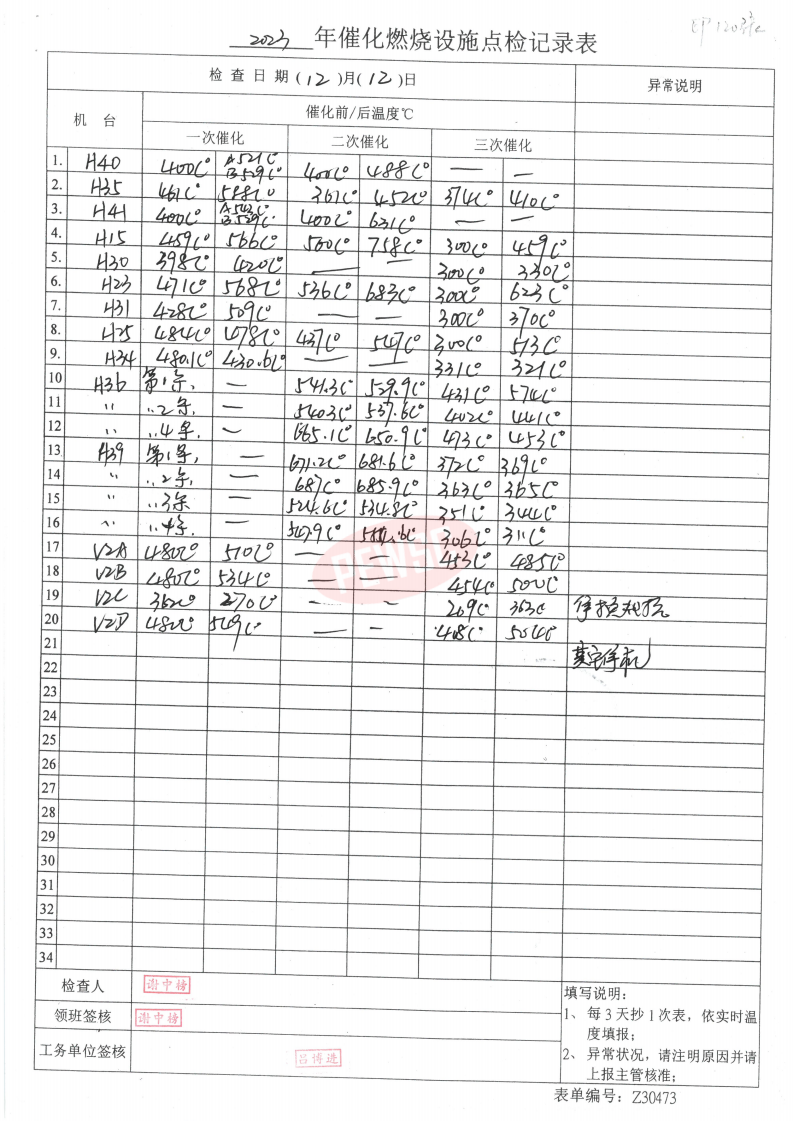 2023 年催化燃烧设施点检记录表
检查日期(12)月(12)日 异常说明
机台 催化前/后温度℃
一次催化 二次催化 三次催化
1. H40 400C° A521C° B529C° 400C° 488C° — —
2. H35 461C° 588C° 361C° 452C° 374C° 410C°
3. H41 400C° A542C° B529C° 400C° 631C° — —
4. H15 459C° 566C° 560C° 758C° 300C° 459C°
5. H30 398C° 420C° — — 300C° 330C°
6. H23 471C° 568C° 536C° 683C° 300C° 623C°
7. H31 428C° 509C° — — 300C° 370C°
8. H25 484C° 478C° 437C° 547C° 300C° 513C°
9. H34 480.1C° 430.6C° — — 331C° 321C°
10 H36 第1条, — 541.3C° 529.9C° 431C° 574C°
11 〃 〃2条, — 540.3C° 537.6C° 402C° 441C°
12 〃 〃4条, — 665.1C° 650.9C° 473C° 453C°
13 H39 第1条, — 671.2C° 681.6C° 372C° 369C°
14 〃 〃2条, — 687C° 685.9C° 363C° 365C°
15 〃 〃3条 — 524.6C° 534.8C° 351C° 344C°
16 〃 〃4条, — 567.9C° 306C° 311C°
17 V2A 480C° 510C° — — 453C° 485C°
18 V2B 480C° 534C° — — 454C° 500C°
19 V2C 362C° 270C° — — 269C° 363C
20 V2D 480C° 549C° — — 468C° 504C°
21
22
23
24
25
26
27
28
29
30
31
32
33
34
PEWSC
检查人 谢中榜
领班签核 谢中榜
工务单位签核 吕博进
填写说明：
1、每3天抄1次表，依实时温
度填报；
2、异常状况，请注明原因并请
上报主管核准；
表单编号：Z30473